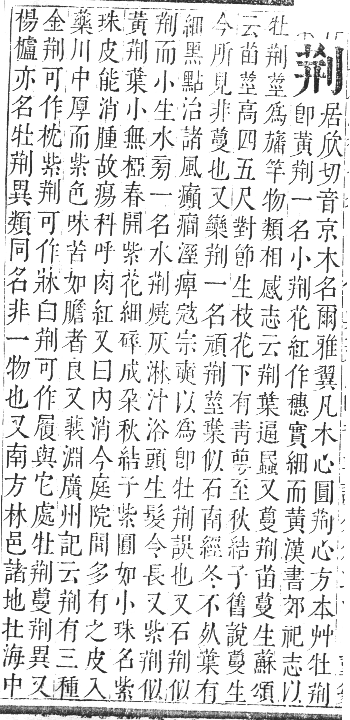 荆
居欣切音京木名爾雅翼凡木心圓荆心方本艸牡荆
卽黃荆一名小荆花紅作穗實細而黃漢書郊祀志以
牡荆莖爲旛竿物類相感志云荆葉逼蟁又蔓荆苗蔓生蘇頌
云苗莖高四五尺對節生枝花下有靑萼至秋結子舊說蔓生
今所見非蔓也又欒荆一名頑荆莖葉似石南經冬不㱙葉有
細黑點治諸風癲癇溼痺寇宗奭以爲卽牡荆誤也又石荆似
荆而小生水旁一名水荆燒灰淋汁浴頭生髮令長又紫荆似
黃荆葉小無椏春開紫花細碎成朶秋結子紫圓如小珠名紫
珠皮能消腫故瘍科呼肉紅又曰內消今庭院閒多有之皮入
藥川中厚而紫色味苦如膽者良又裴淵廣州記云荆有三種
金荆可作枕紫荆可作牀白荆可作履與它處牡荆蔓荆異又
楊櫨亦名牡荆異類同名非一物也又南方林邑諸地壮海中